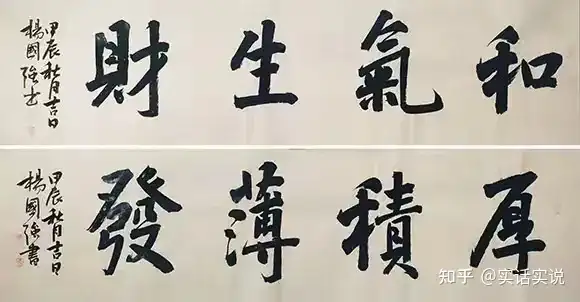 和氣生財
甲辰秋月吉日
楊國強书
厚積薄發
甲辰秋月吉日
楊國強書
知乎 @实话实说